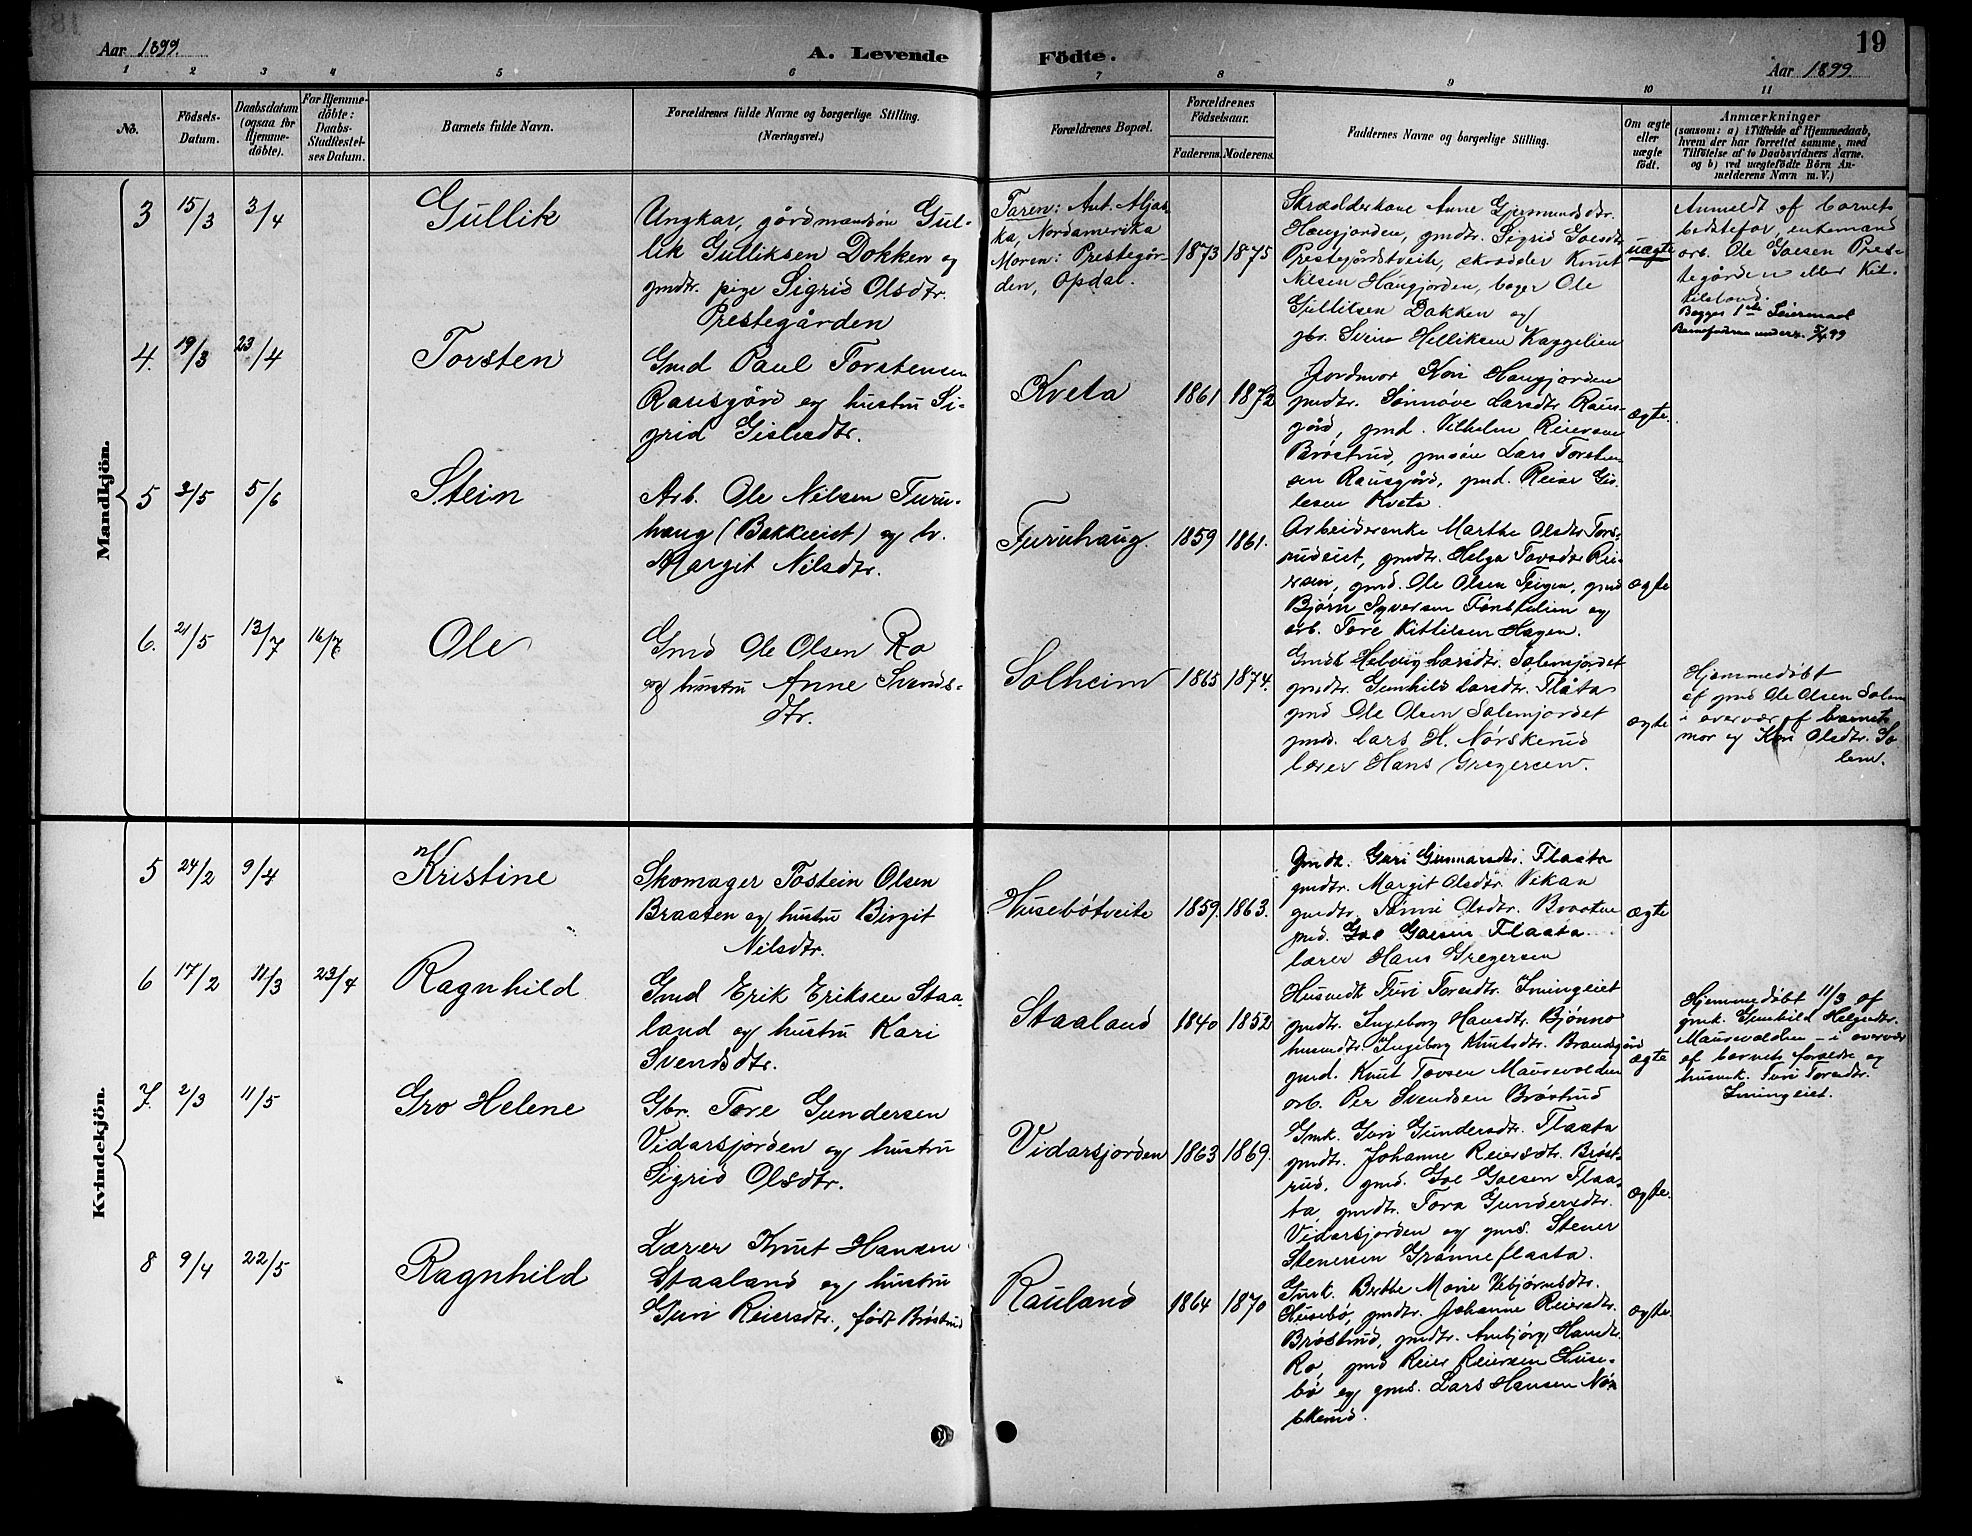 Aar 1899.
A. Levende
Födte.
19
Aar 1899.
1 2 3 4 5 6 7 8 9 10 11
No.
Födsels-
Datum.
Daabsdatum
(ogsaa for
Hjemme-
döbte).
For Hjemme-
döbte:
Daabs-
Stadfestel-
ses Datum.
Barnets fulde Navn.
Forældrenes fulde Navne og borgerlige Stilling.
(Næringsvei.)
Forældrenes Bopæl.
Forældrenes
Födselsaar.
Faderens. Moderens.
Faddernes Navne og borgerlige Stilling.
Om ægte
eller
uægte
født.
Anmærkninger
(saasom: a) i Tilfælde af Hjemmedaab,
hvem der har forrettet samme, med
Tilföielse af to Daabsvidners Navne.
og b) ved uægtefödte Börn An-
melderens Navn m. V.)
Mandkjön.
3 15/3 3/4 Gullik
Ungkar, gårdmandsøn Gul-
lik Gulliksen Dokken og
gmdtr. pige Sigrid Olsdtr.
Prestegården
Faren: Ant. Aljas-
ka, Nordamerika
Moren: Prestegår-
den, Opdal.
1873 1875
Skrædderkone Anne Gjermundsdtr.
Haugjorden, gmdtr. Sigrid Goesdtr.
Prestegårdstveite, skrædder Knut
Nilsen Haugjorden, bager Ole
Gullitsen Dokken og
gbr. Svein Helliksen Kaggelien
uægte
Anmeldt af barnets
bedstefar, enkemand
arb. Ole Goesen Pres-
tegården eller Kit-
tilsland.
Begges 1ste Leiermaal
Barnefaderen underr. 5/4 99
4. 19/3 23/4 Torsten
Gmd Paul Torstensen
Rausgård og hustru Si-
grid Gislesdtr.
Kveta
1861 1872
Jordmor Kari Haugjorden
gmdtr. Sønnøve Larsdtr. Raus-
gård, gmd. Vilhelm Reiersen
Brøstrud, gmsøn Lars Torsten-
sen Rausgård, gmd. Reier Gis-
lesen Kveta
ægte.
5 3/5 5/6 Stein
Arb. Ole Nilsen Furu-
haug (Bakkeeiet) og h.
Margit Nilsdtr.
Furuhaug.
1859 1861.
Arbeiderenke Marthe Olsdtr. Tors-
rudeiet, gmdtr. Helga Tovsdtr. Rei-
sen, gmd. Ole Olsen Teigen, gmd
Bjørn Syversen Tønstulien og
arb. Tore Kittilsen Hagen.
ægte
6. 21/5 13/7 16/7 Ole
Gmd Ole Olsen Ro
og hustru Anne Svends-
dtr.
Solheim
1865 1874.
Gmdk Helvig Larsdtr. Solemjordet
gmdtr. Gunhild Larsdtr. Flåta
gmd Ole Olsen Solemjordet
gmd. Lars H. Nørskerud
lærer Hans Gregersen.
ægte
Hjemmedøbt
af gmd Ole Olsen Solem
i overvær af barnets
mor og Kari Olsdtr. So-
lem.
Kvindekjön.
5 24/2 9/4 Kristine
Skomager Tostein Olsen
Braaten og hustru Birgit
Nilsdtr.
Husebötveite
1859. 1863.
Gmdk. Guri Gunnarsdtr. Flaata
gmdtr. Margit Olsdtr. Vikan
gmdtr. Tønne Olsdtr. Braaten
gmd. Goe Goesen Flaata.
lærer Hans Gregersen
ægte
6 17/2 11/3 23/4 Ragnhild
Gmd Erik Eriksen Staa-
land og hustru Kari
Svendsdtr.
Staaland
1840 1852
Husmdk Turi Toresdtr. Imingeiet
gmdtr. Ingeborg Hansdtr. Bjønno
husmdtr. Ingeborg Knutsdtr. Brandsgård
gmd. Knut Tovsen Maurevolden
arb. Per Svendsen Brøstrud
ægte
Hjemmedøbt 11/3 af
gmk. Gunhild Helgesdtr.
Maurevolden – i overvær
af barnets forældre og
husmk. Turi Toresdtr.
Imingeiet.
7. 2/3 11/5 Gro Helene
Gbr. Tore Gundersen
Vidarsjorden og hustru
Sigrid Olsdtr.
Vidarsjorden
1863 1869.
Gmk. Guri Gundersdtr. Flaata
gmdtr. Johanne Reiersdtr. Brøst-
rud, gmd. Goe Goesen Flaa-
ta gmdtr. Tora Gundersdtr.
Vidarsjorden og gmd. Stener
Stenersen Grønneflaata.
ægte.
8 9/4 22/5 Ragnhild
Lærer Knut Hansen
Staaland og hustru
Guri Reiersdtr., født Brøstrud
Rauland
1864 1870
Gmk. Berthe Marie Vebjørnsdtr.
Husebø, gmdtr. Johanne Reiersdtr.
Brøstrud, gmdtr. Ambjørg Hansdtr.
Ro, gmd Reier Reiersen Huse-
bø og gmd. Lars Hansen Nør-
skerud.
ægte.